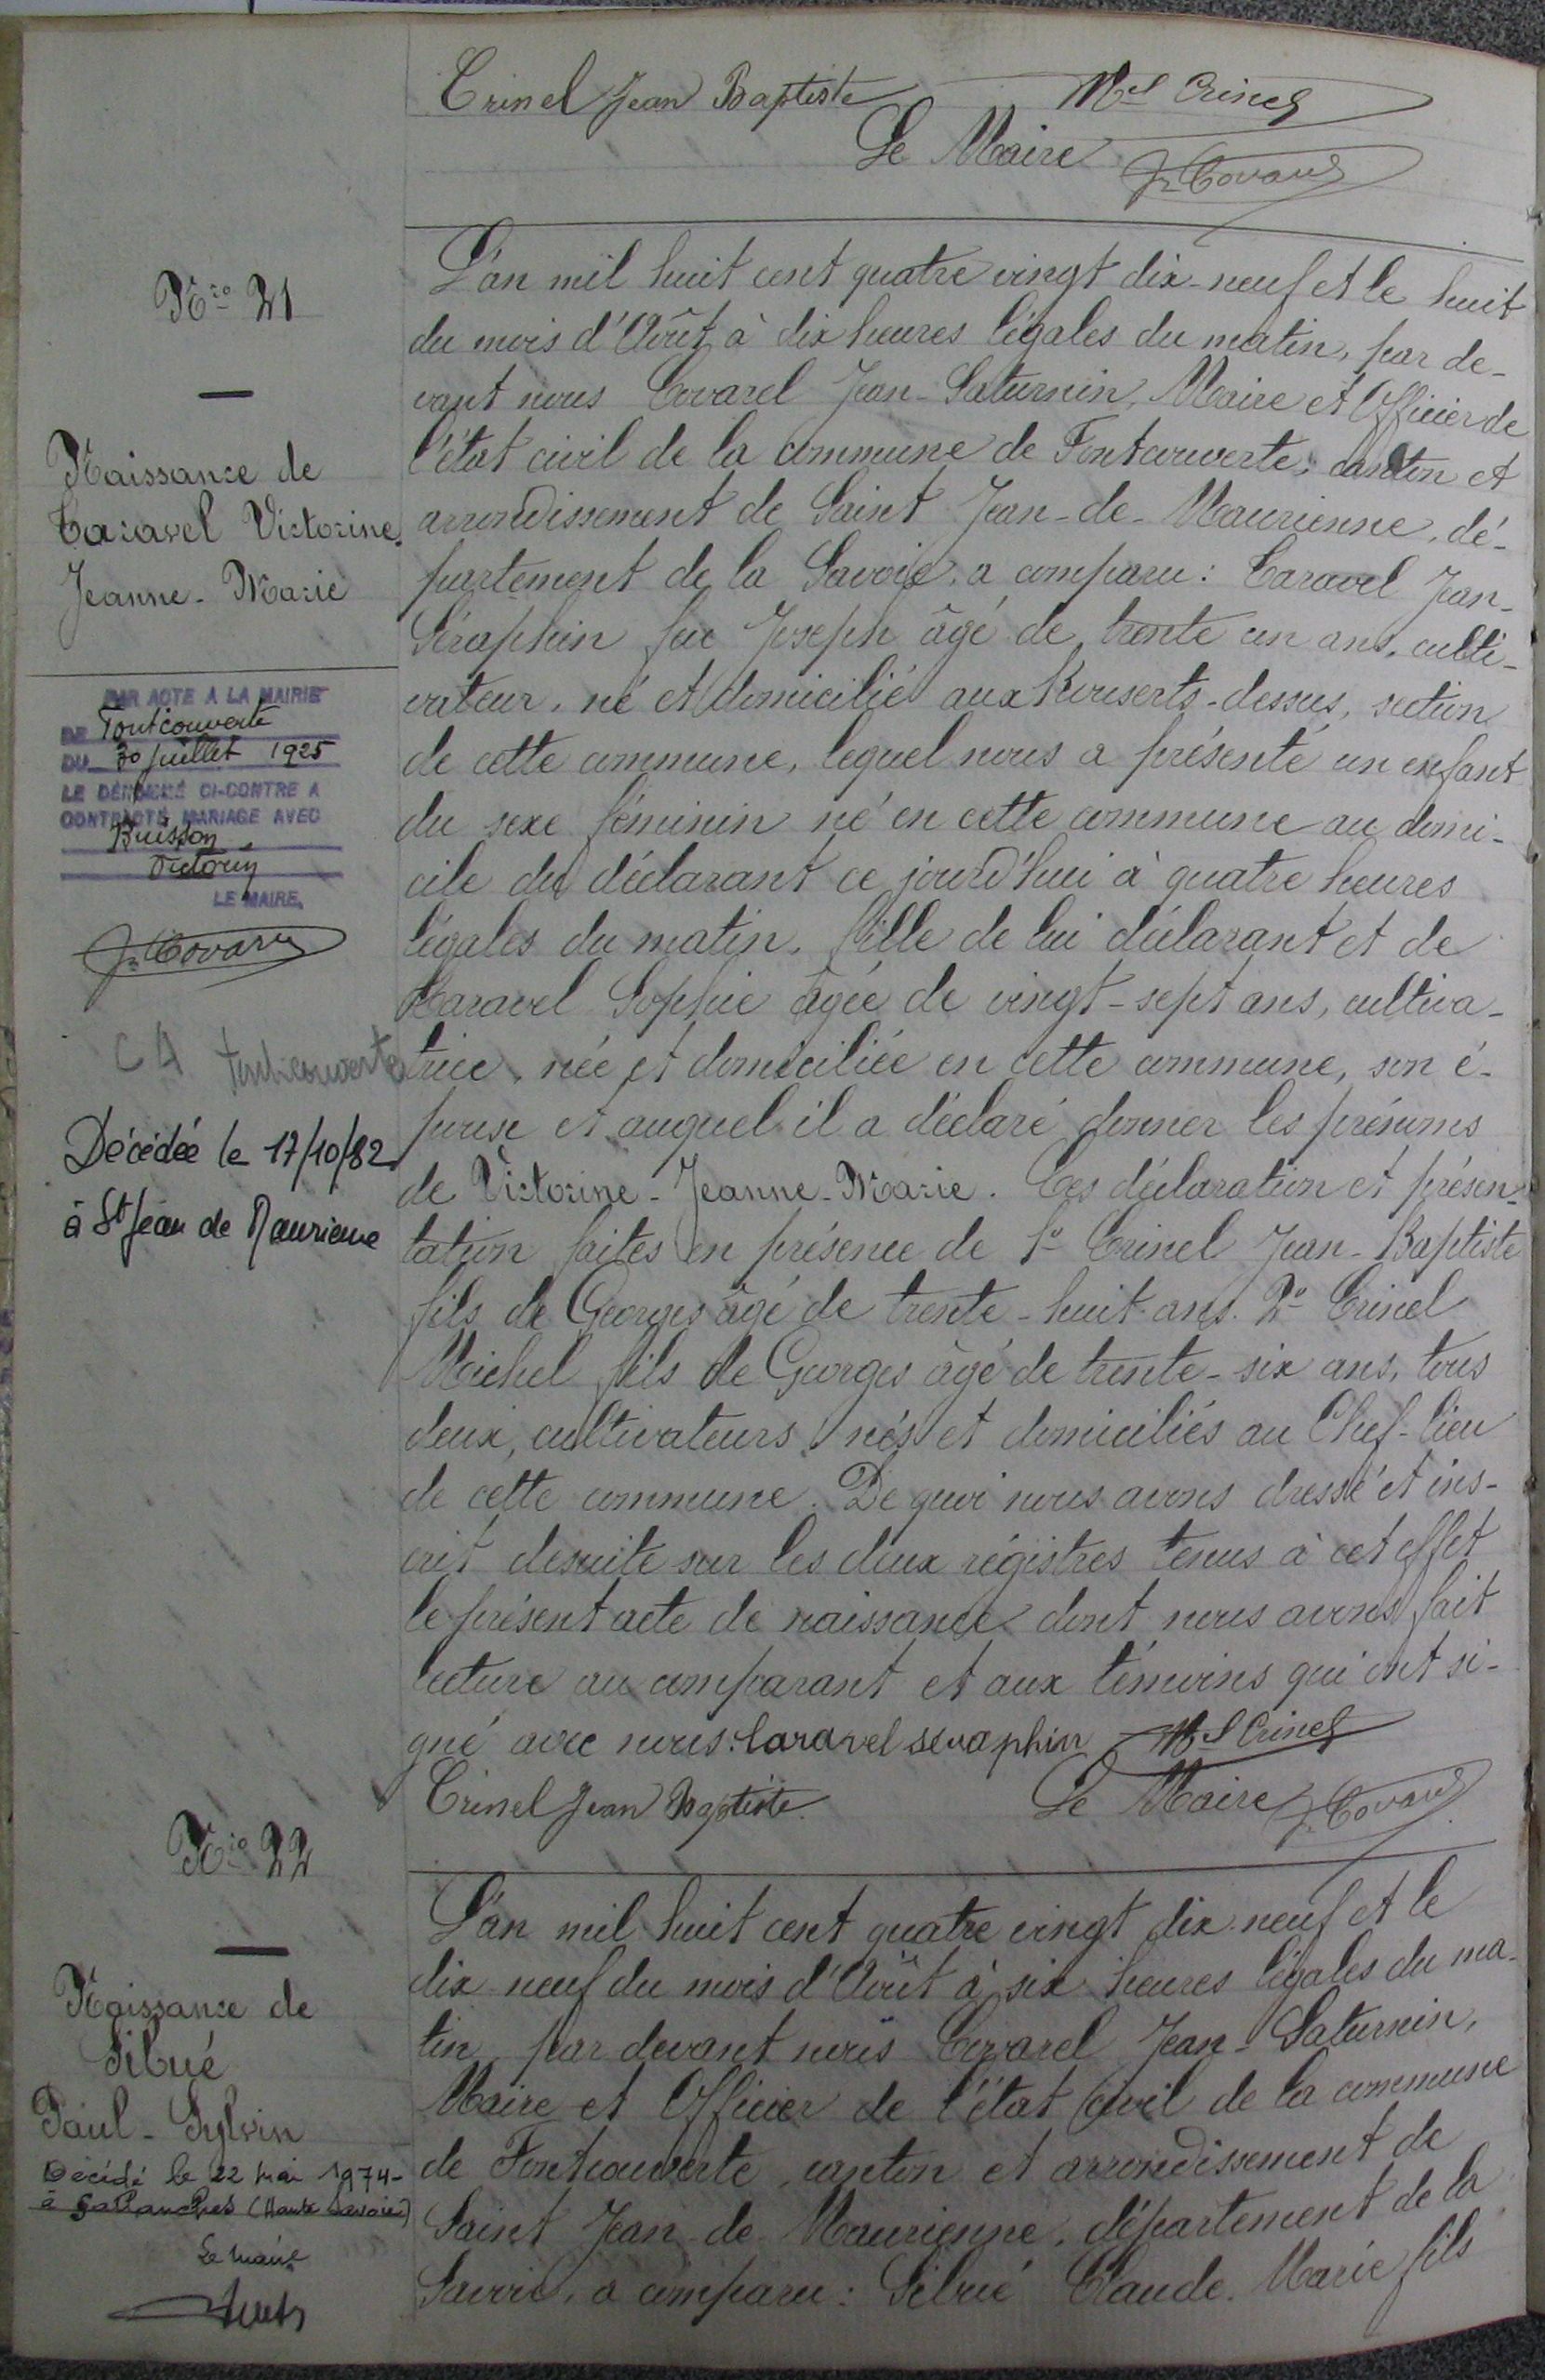 Crinel Jean Baptiste Mel Crinel
Le Maire
Jn Covarel
Nro 21
Naissance de
Caravel Victorine
Jeanne-Marie
PAR ACTE A LA MAIRIE
DE Fontcouverte
DU 30 juillet 1925
LE DÉNOMMÉ CI-CONTRE A
CONTRACTÉ MARIAGE AVEC
Buisson
Victorin
LE MAIRE,
Jn Covarel
C A Fontcouverte
Décédée le 17/10/82
à St Jean de Maurienne
L'an mil huit cent quatre vingt dix-neuf et le huit
du mois d'Août à dix heures légales du matin, par de-
vant nous Covarel Jean-Saturnin, Maire et Officier de
l'état civil de la commune de Fontcouverte, canton et
arrondissement de Saint Jean-de-Maurienne, dé-
partement de la Savoie, a comparu : Caravel Jean-
Séraphin feu Joseph âgé de trente un ans, culti-
vateur, né et domicilié aux Rouserts-dessus, section
de cette commune, lequel nous a présenté un enfant
du sexe féminin né en cette commune au domi-
cile du déclarant ce jourd'hui à quatre heures
légales du matin, fille de lui déclarant et de
Caravel Sophie âgée de vingt-sept ans, cultiva-
trice, née et domiciliée en cette commune, son é-
pouse et auquel il a déclaré donner les prénoms
de Victorine-Jeanne-Marie. Ces déclaration et présen-
tation faites en présence de 1º Crinel Jean-Baptiste
fils de Georges âgé de trente-huit ans. 2º Crinel
Michel fils de Georges âgé de trente-six ans, tous
deux, cultivateurs, nés et domiciliés au Chef-lieu
de cette commune. De quoi nous avons dressé et ins-
crit desuite sur les deux régistres tenus à cet effet
le présent acte de naissance dont nous avons fait
lecture au comparant et aux témoins qui ont si-
gné avec nous. Caravel Séraphin Mel Crinel
Crinel Jean Baptiste. Le Maire Jn Covarel
Nro 22
Naissance de
Sibué
Paul-Sylvin
Décédé le 22 mai 1974-
à Sallanches (Haute Savoie)
Le maire
L'an mil huit cent quatre vingt dix neuf et le
dix neuf du mois d'Août à six heures légales du ma-
tin, par devant nous Covarel Jean-Saturnin,
Maire et Officier de l'état civil de la commune
de Fontcouverte, canton et arrondissement de
Saint Jean-de-Maurienne, département de la
Savoie, a comparu : Sibué Claude-Marie fils